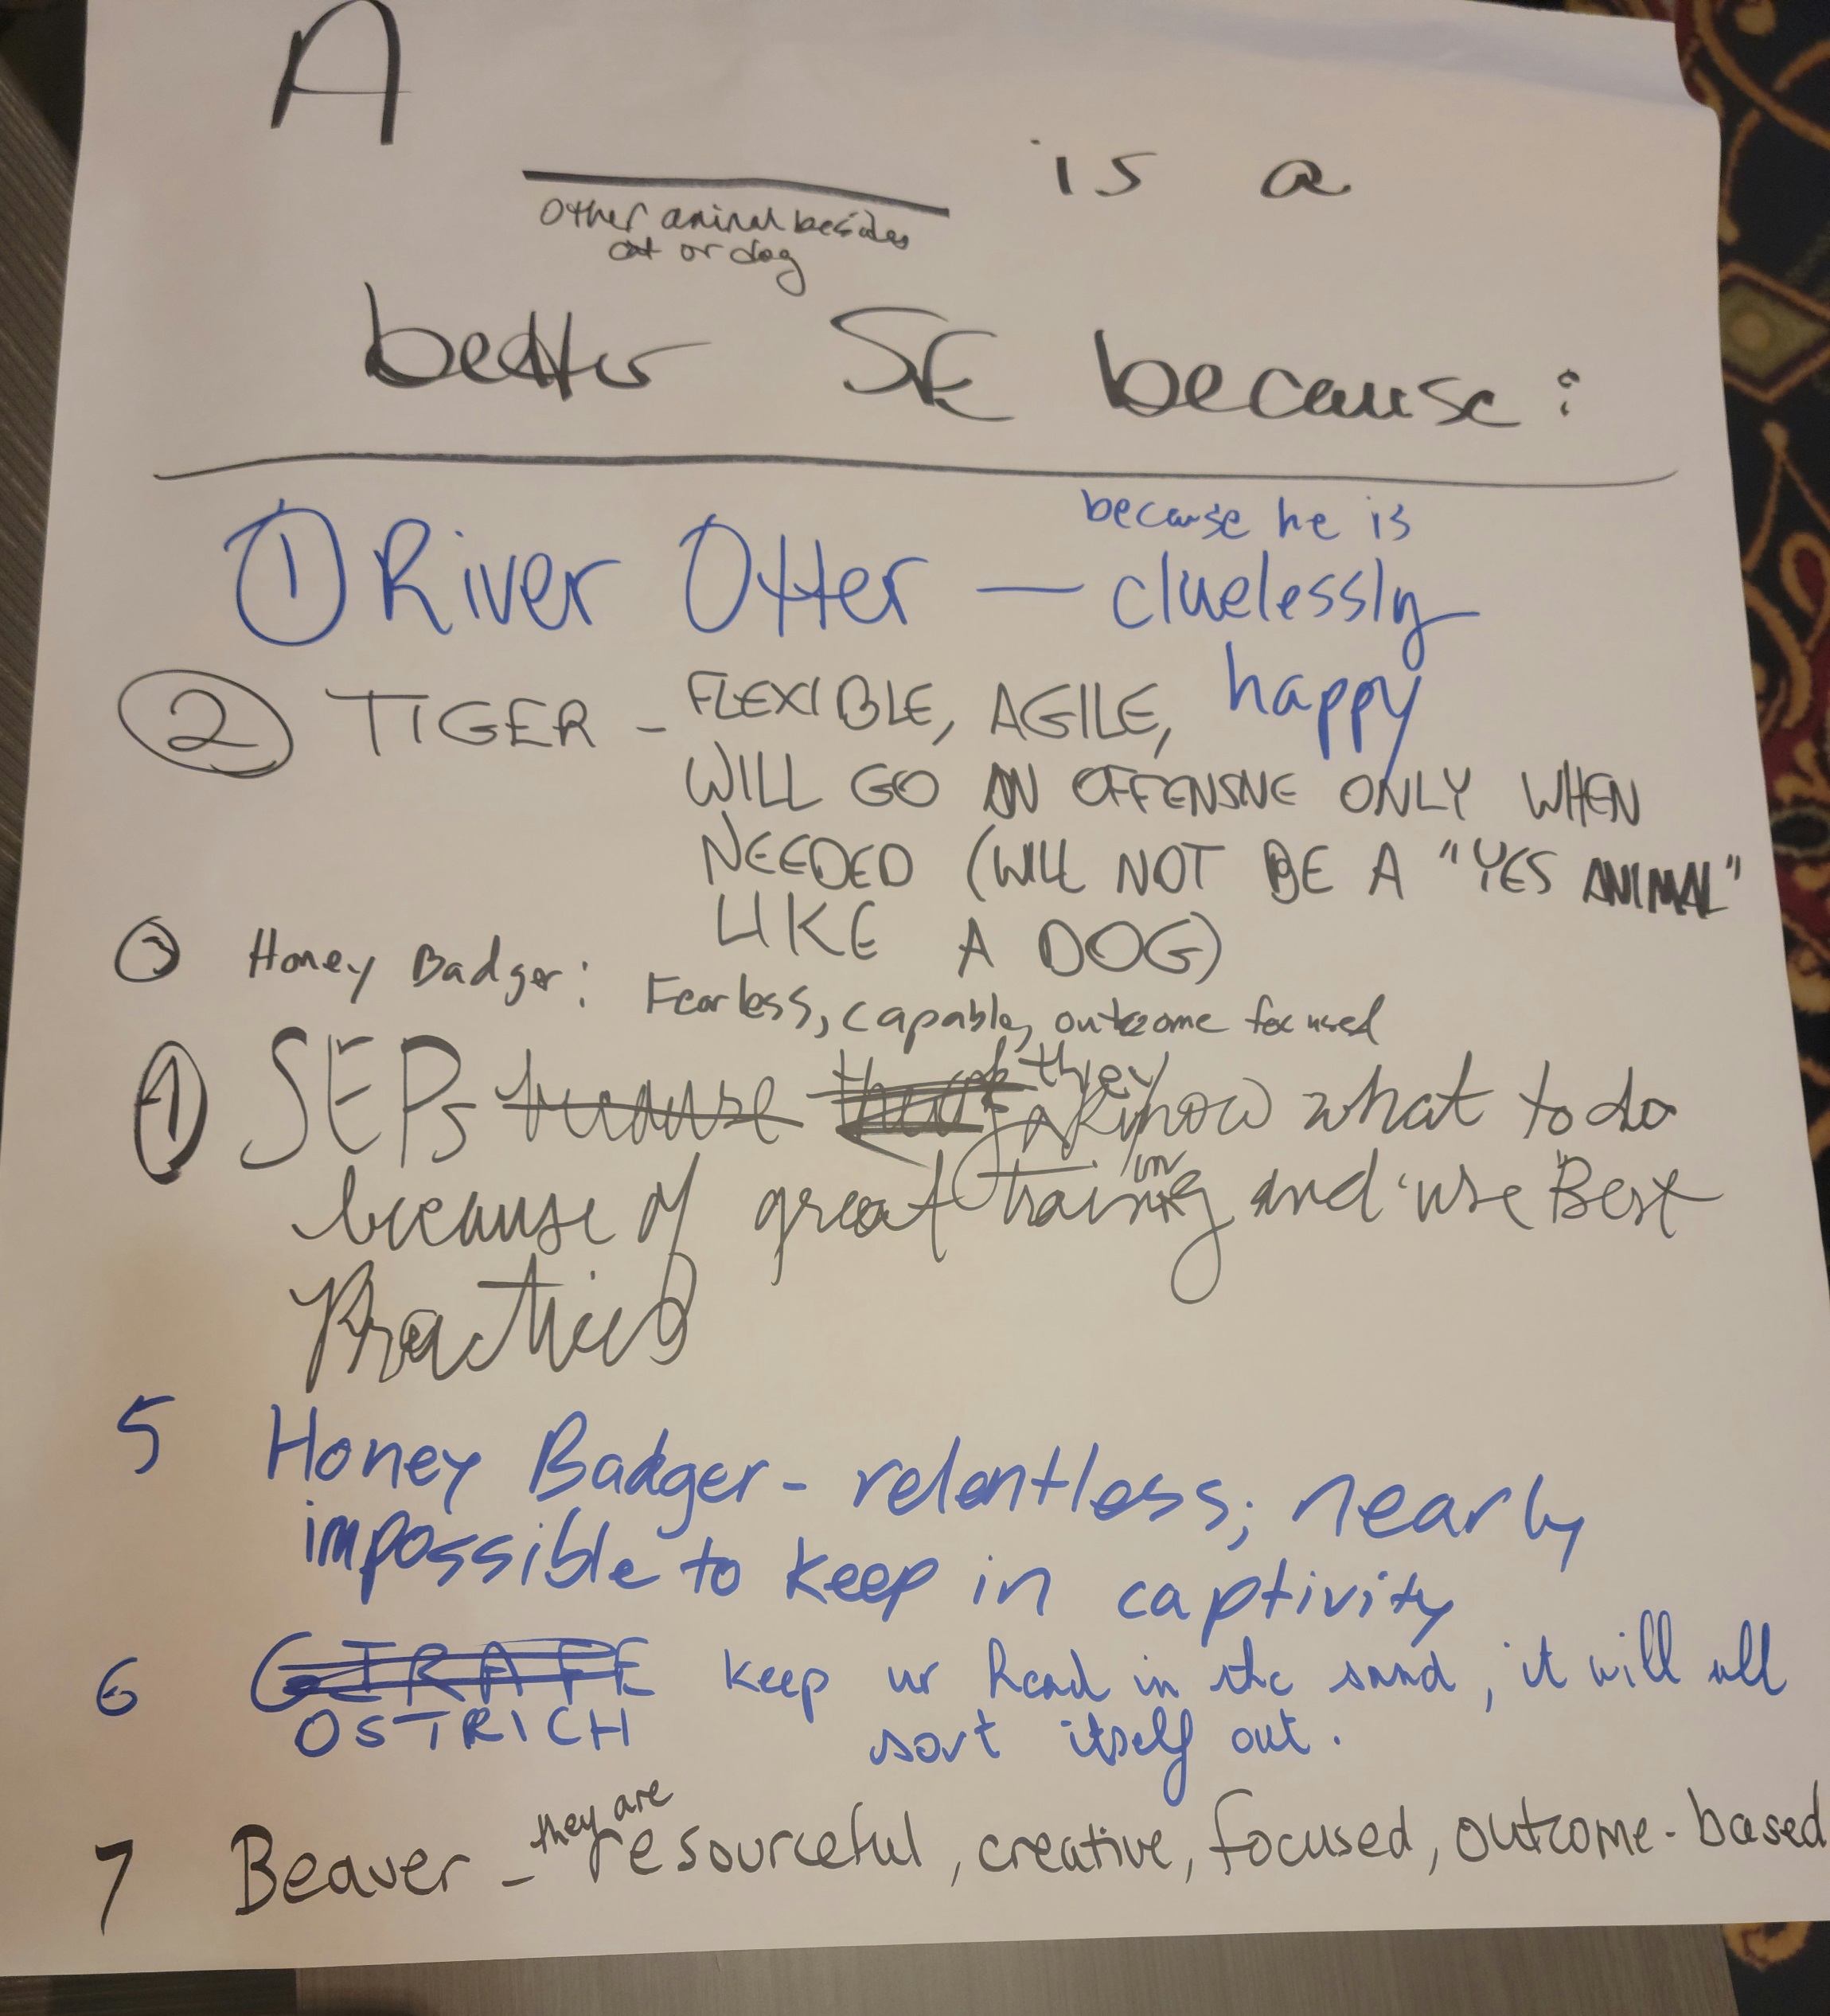 A ______ is a
other animal besides
cat or dog
better SE because:
because he is
① River Otter — cluelessly
happy
② TIGER - FLEXIBLE, AGILE,
WILL GO ON OFFENSIVE ONLY WHEN
NEEDED (WILL NOT BE A "YES ANIMAL"
LIKE A DOG)
③ Honey Badger: Fearless, capable, outcome focused
④ SEPs because they know what to do
because of great training and use Best
Practices
5 Honey Badger - relentless; nearly
impossible to keep in captivity
6 GIRAFE keep ur head in the sand, it will all
OSTRICH sort itself out.
7 Beaver - they are resourceful, creative, focused, outcome-based